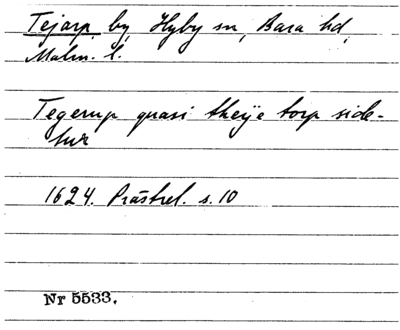 Tejarp by, Hyby sn, Bara hd,
Malm. l.
Tegerup quasi theÿe torp side-
tur
1624. Prästrel. s. 10
Nr 5533.